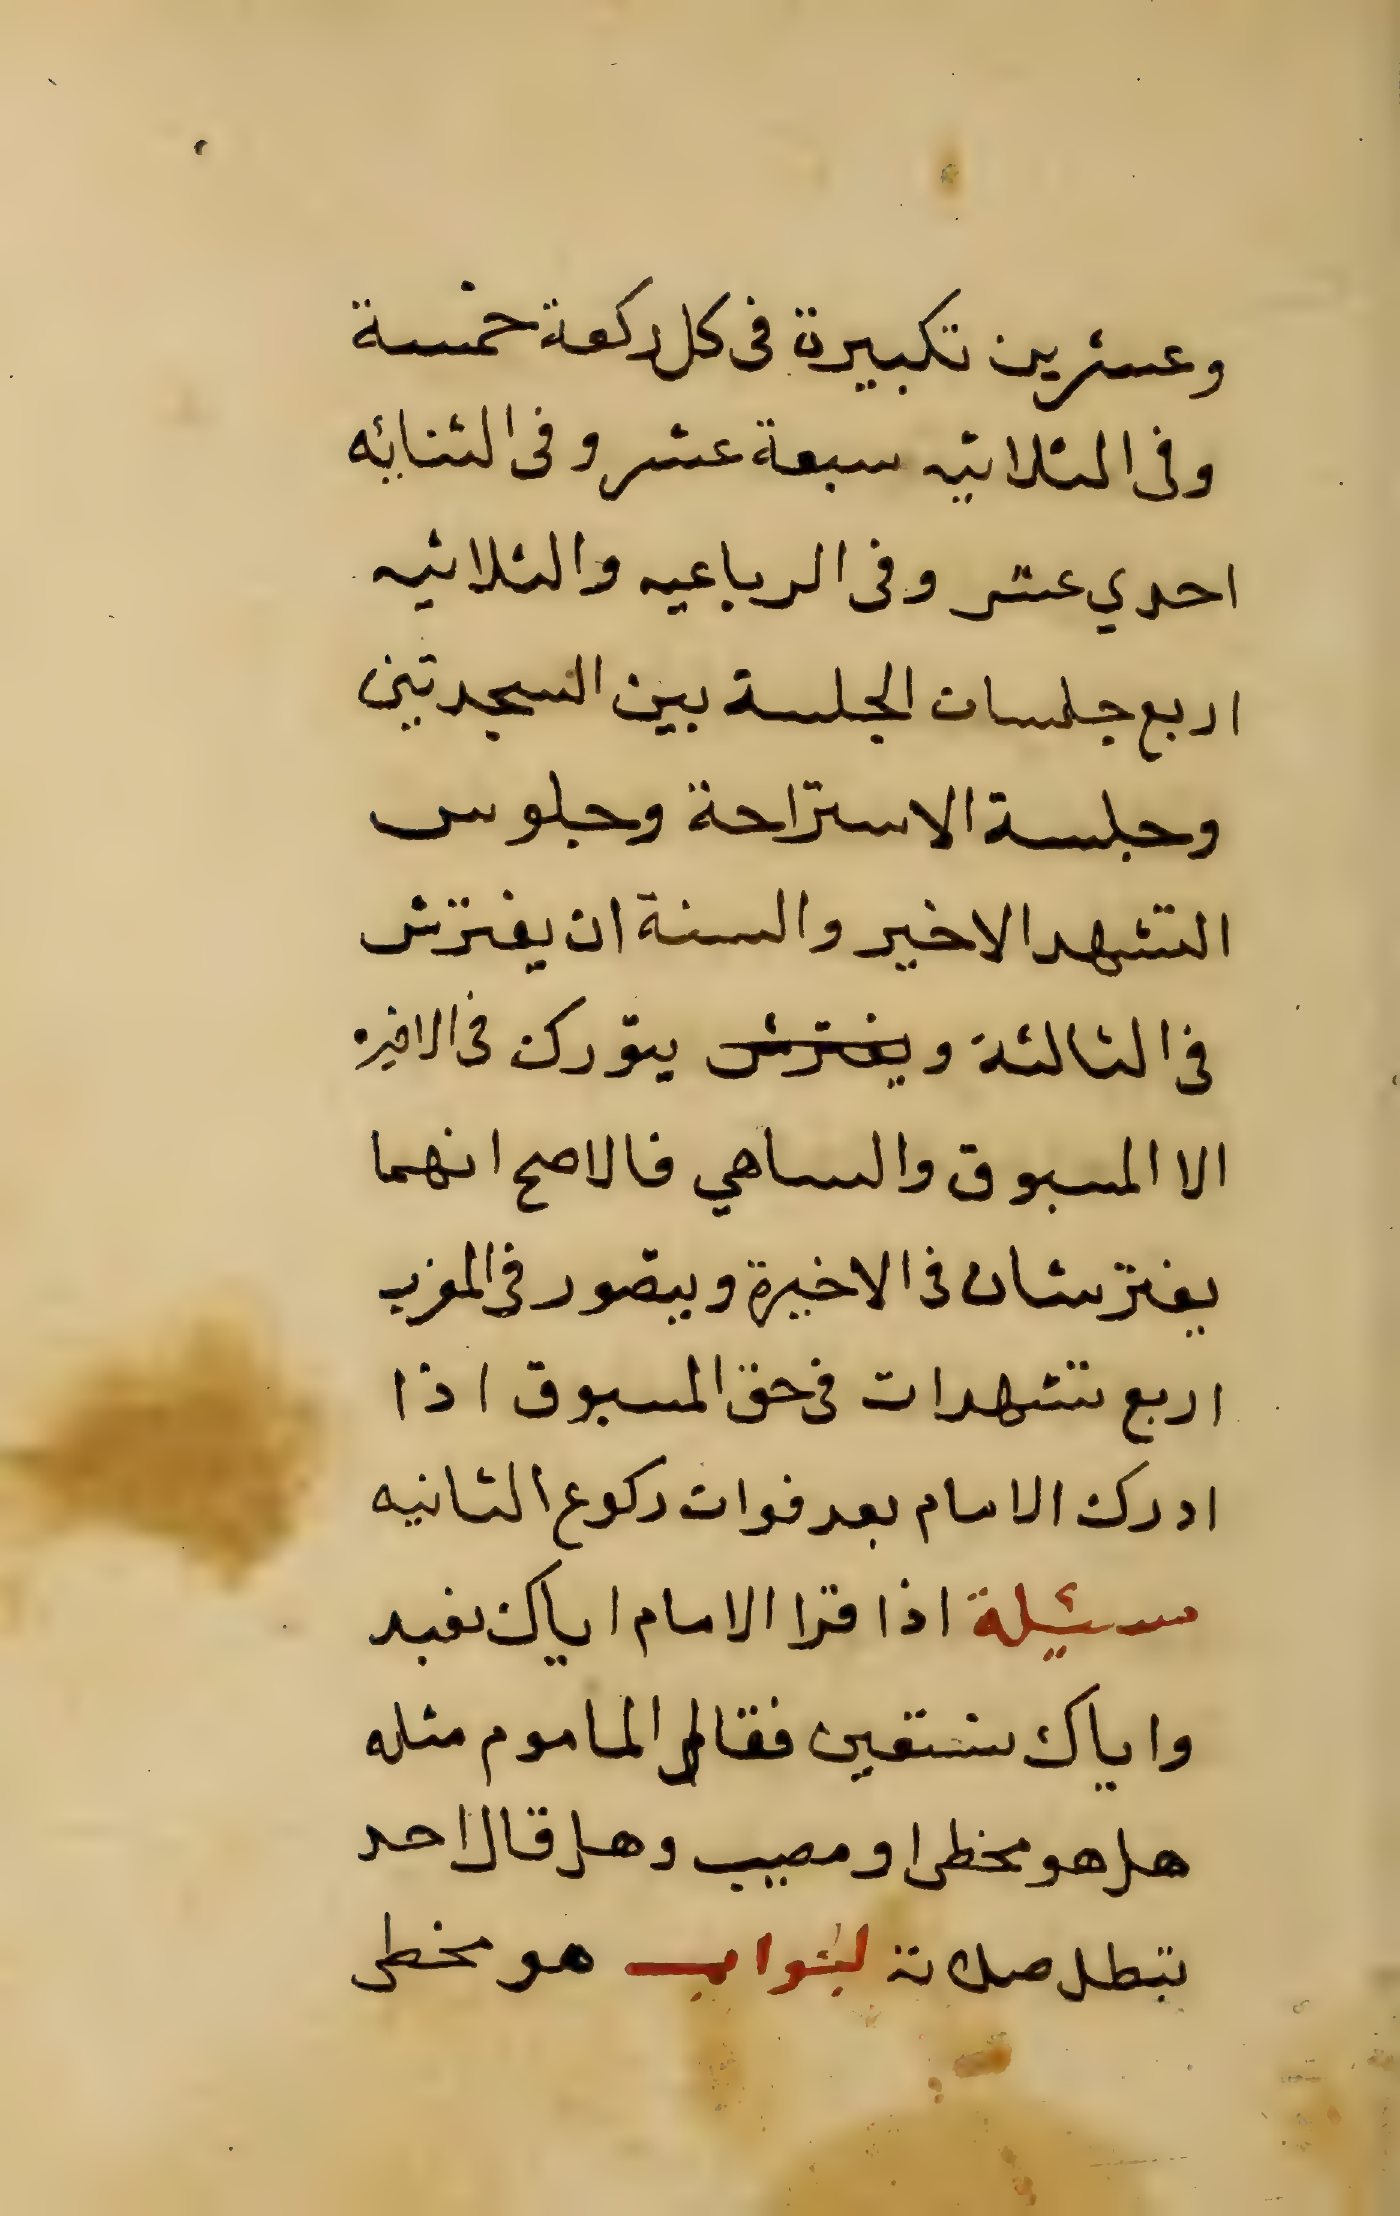 وعشرين تكبيرة فى كل ركعة خمسة
وفى الثلاثيه سبعة عشر وفى الثنائيه
احدي عشر وفى الرباعيه والثلاثيه
اربع جلسات الجلسة بين السجدتين
وجلسة الاستراحة وجلوس
التشهد الاخير والسنة ان يفترش
فى الثالثة ويفترش يتورك فى الاخيره
الا المسبوق والساهي فالاصح انهما
يفترشان فى الاخيرة ويتصور فى المغرب
اربع تشهدات فى حق المسبوق اذا
ادرك الامام بعد فوات ركوع الثانيه
مسئيلة اذا قرا الامام اياك نعبد
واياك نستعين فقال الماموم مثله
هل هو مخطى او مصيب وهل قال احد
تبطل صلاته الجواب هو مخطى